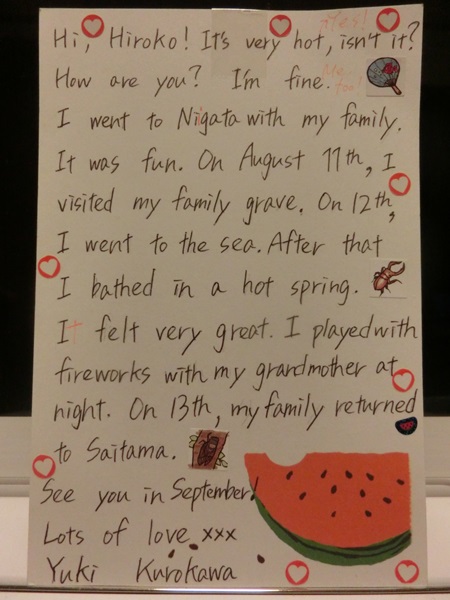 Yes!
Hi, Hiroko! It's very hot, isn't it?
How are you? I'm fine. Me too!
I went to Niigata with my family.
It was fun. On August 11th, I
visited my family grave. On 12th,
I went to the sea. After that
I bathed in a hot spring.
It felt very great. I played with
fireworks with my grandmother at
night. On 13th, my family returned
to Saitama.
See you in September!
Lots of love xxx
Yuki Kurokawa